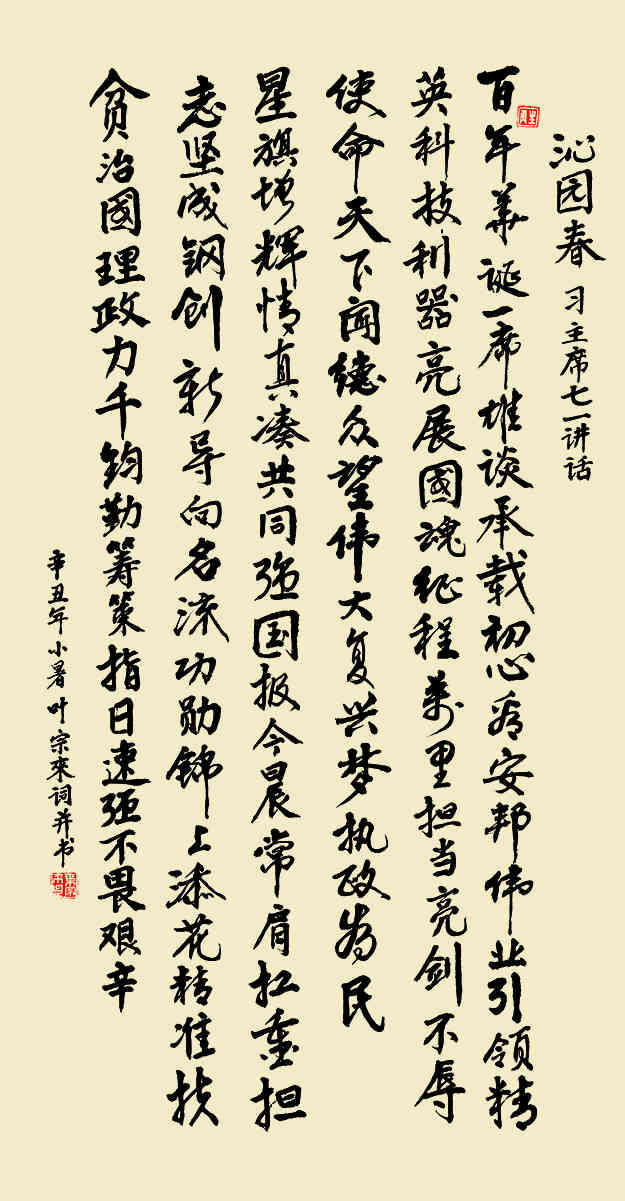 沁园春 习主席七一讲话
百年華诞一席雄谈承载初心看安邦伟业引领精
英科技利器亮展國魂征程萬里担当亮剑不辱
使命天下闻德众望伟大复兴梦执政为民
星旗增辉情真凑共同强国报今晨常肩扛重担
志坚成钢创新导向名流功勋锦上添花精准扶
贫治國理政力千钧勤筹策指日速强不畏艰辛
辛丑年小暑叶宗來词并书